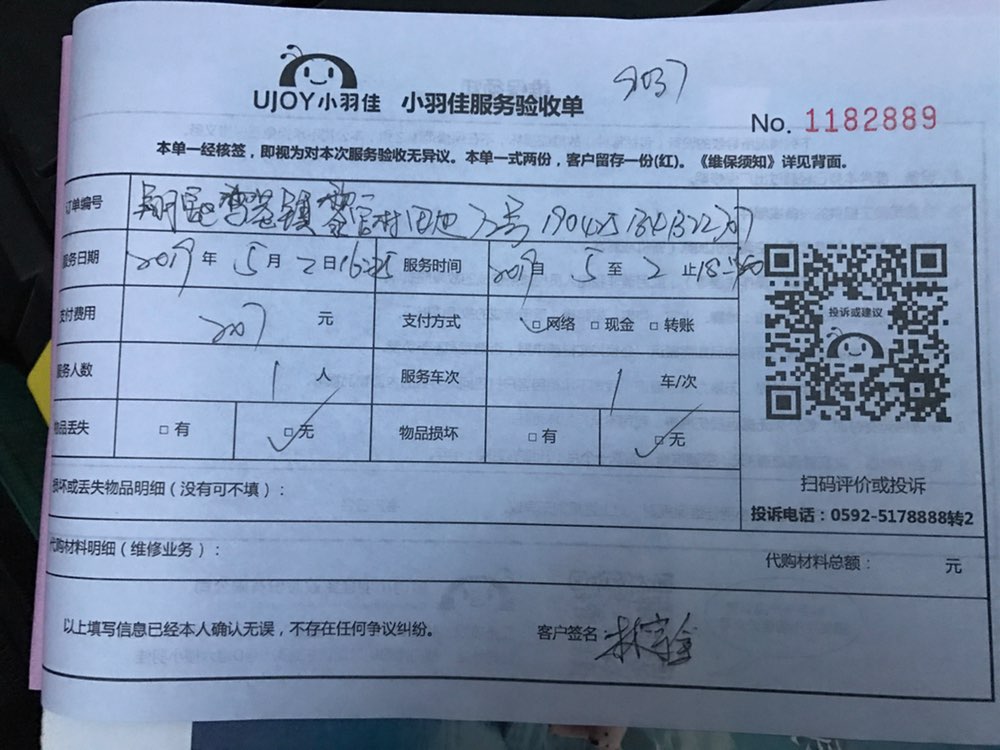 UJOY小羽佳 小羽佳服务验收单 9037
No. 1182889
本单一经核签，即视为对本次服务验收无异议。本单一式两份，客户留存一份(红)。《维保须知》详见背面。
订单编号 翔 镇 村
服务日期 2019年 5月 2日16:25 服务时间 2019自 5至 2止18
支付费用 207 元 支付方式 □网络 □现金 □转账
服务人数 1 人 服务车次 1 车/次
物品丢失 □有 □无 物品损坏 □有 □无
投诉或建议
损坏或丢失物品明细（没有可不填）：
扫码评价或投诉
投诉电话：0592-5178888转2
代购材料明细（维修业务）：
代购材料总额： 元
以上填写信息已经本人确认无误，不存在任何争议纠纷。
客户签名 林